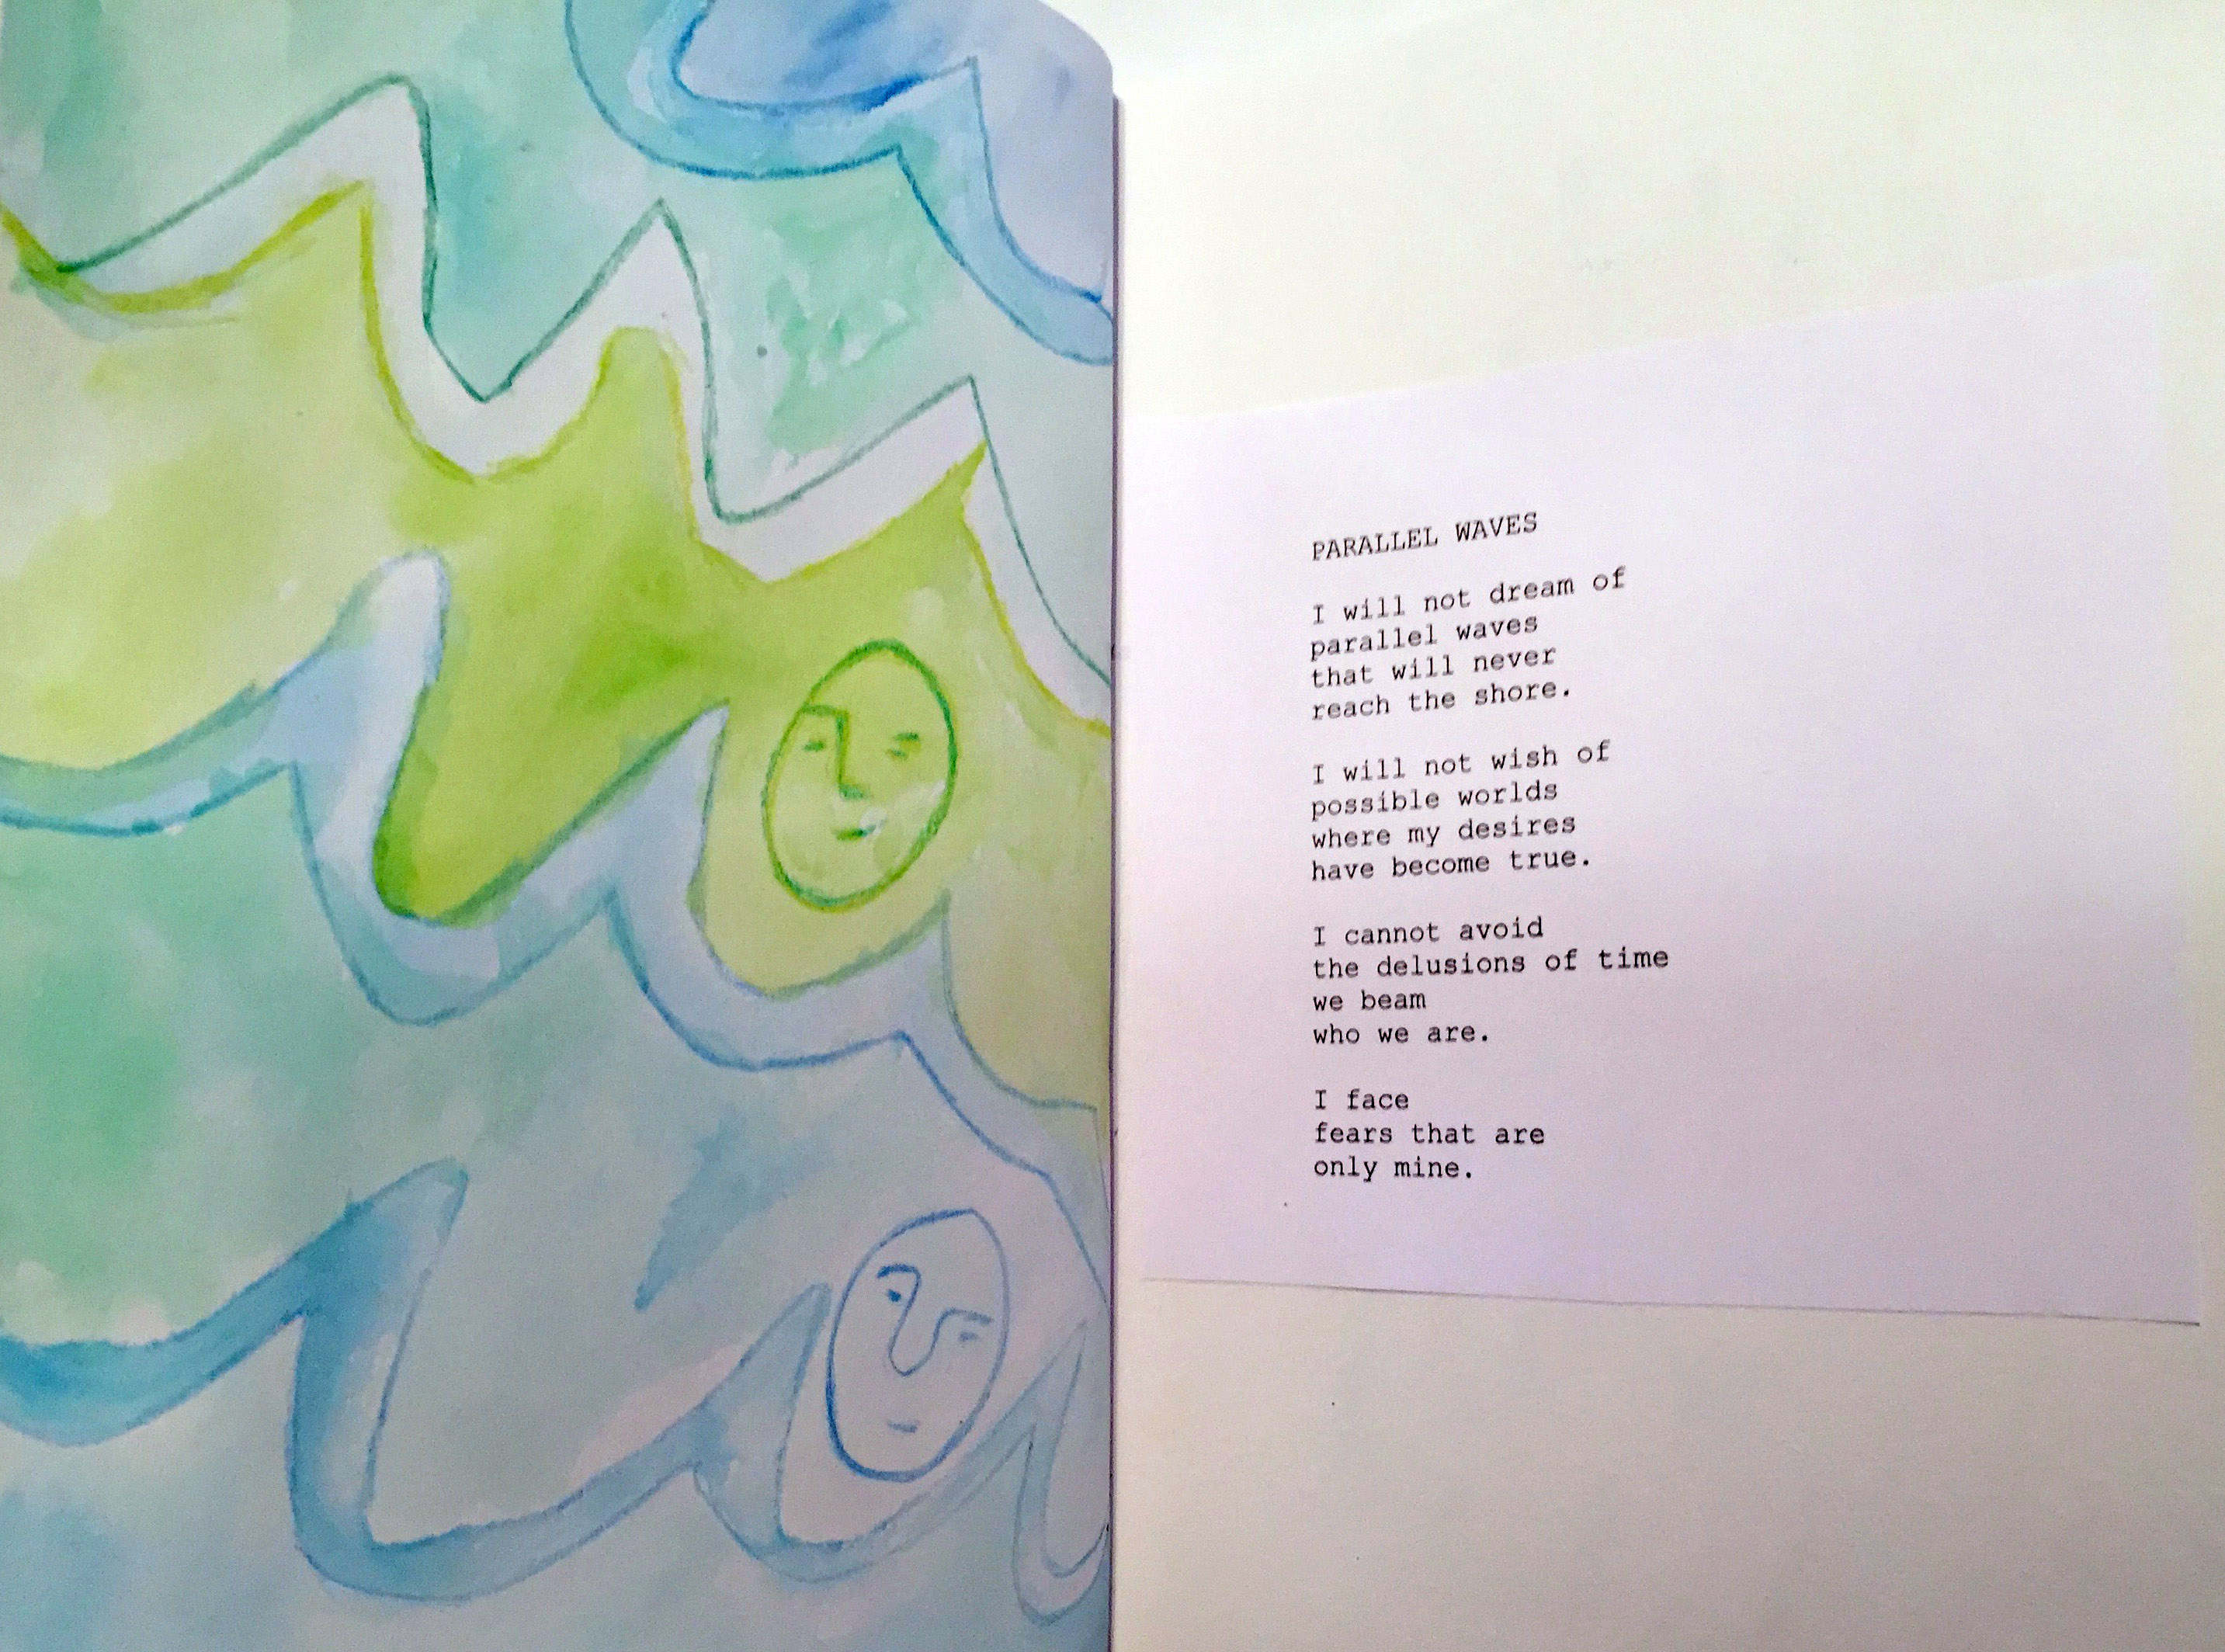 PARALLEL WAVES
I will not dream of
parallel waves
that will never
reach the shore.
I will not wish of
possible worlds
where my desires
have become true.
I cannot avoid
the delusions of time
we beam
who we are.
I face
fears that are
only mine.